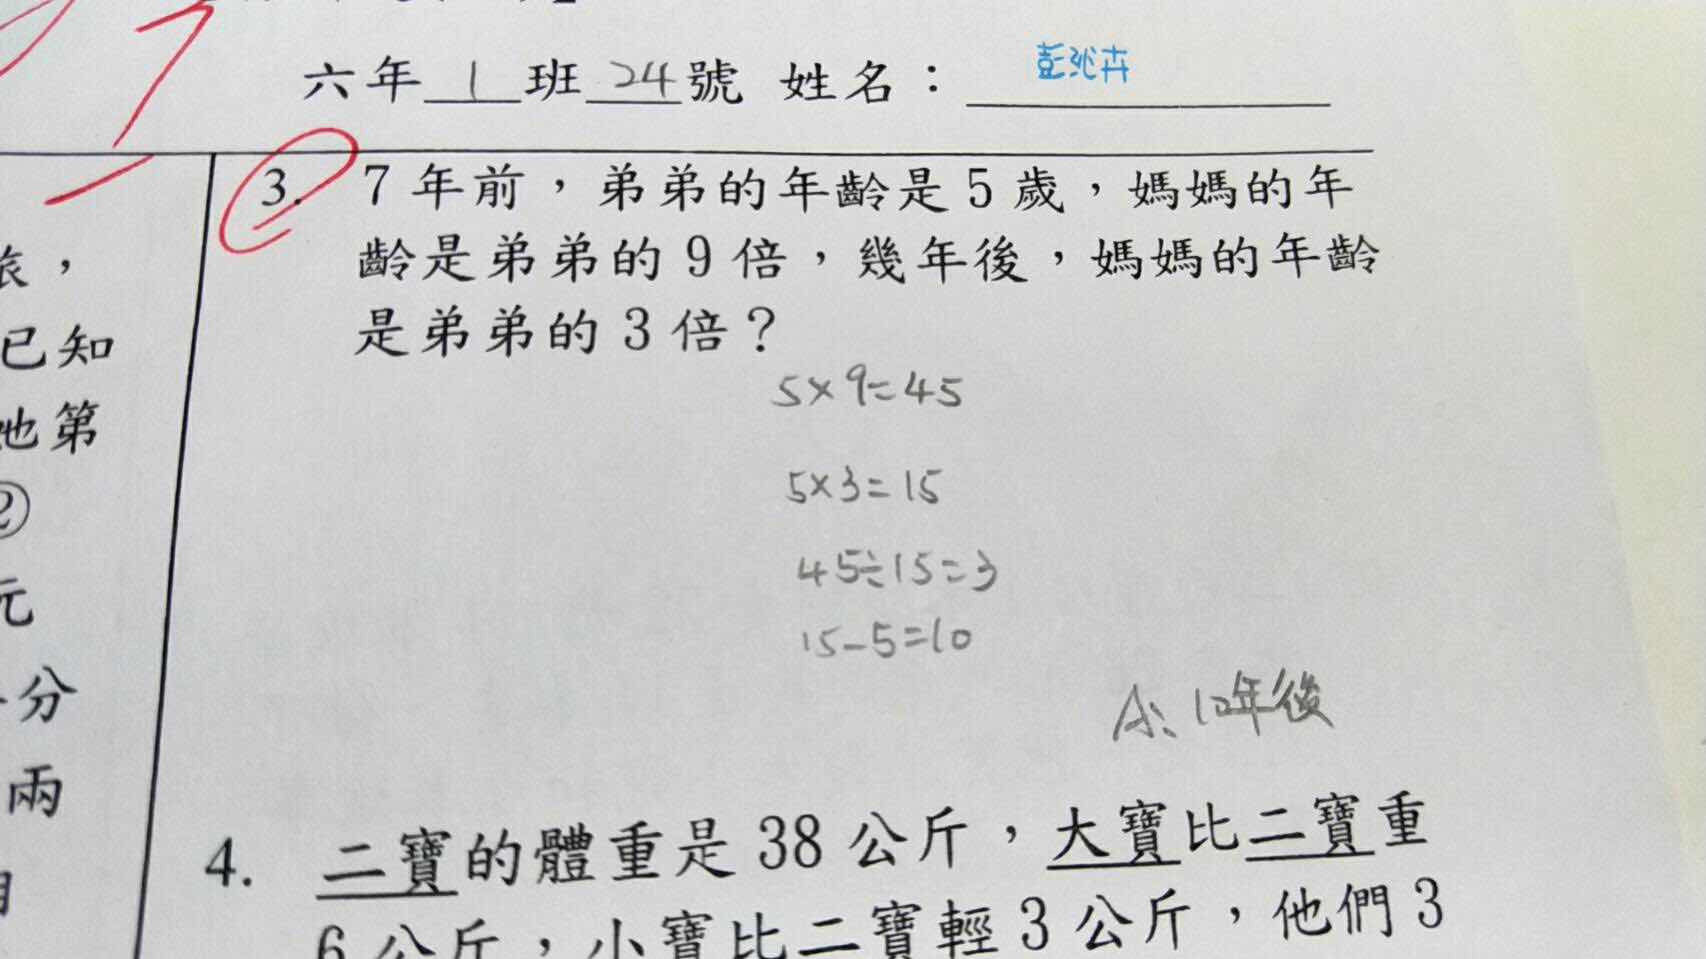 六年 1 班 24 號 姓名：
3. 7年前，弟弟的年齡是5歲，媽媽的年
齡是弟弟的9倍，幾年後，媽媽的年齡
是弟弟的3倍？
5×9=45
5×3=15
45÷15=3
15-5=10
A: 10年後
旅，
已知
她第
②
元
分
兩
4. 二寶的體重是38公斤，大寶比二寶重
6公斤，小寶比二寶輕3公斤，他們3